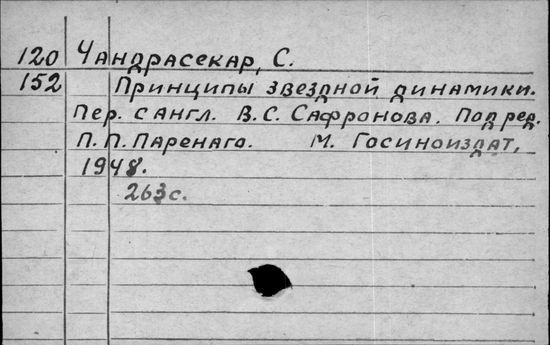 120 Чандрасекар, С.
152 Принципы звездной динамики.
Пер. с англ. В.С. Сафронова. Под ред.
П.П. Паренаго. М. Госиноиздат,
1948.
263 с.